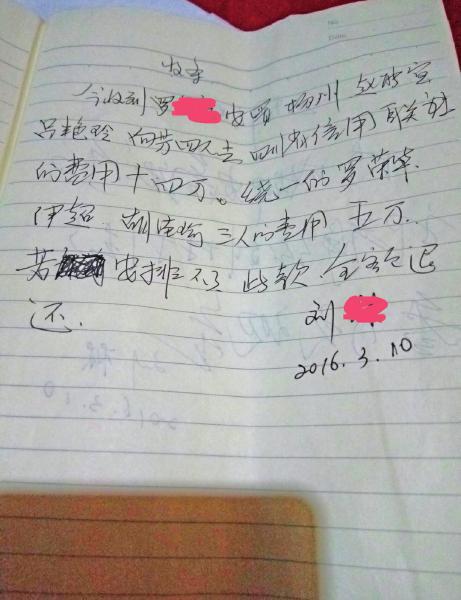 No
Date
收条
今收到罗 安置 杨州
吕艳玲 向芳四人去四川农信用联社
的费用十四万。统一的罗荣华
伊超 胡 三人的费用 五万.
若 安排不了 此款 全部退
还.
刘
2016.3.10